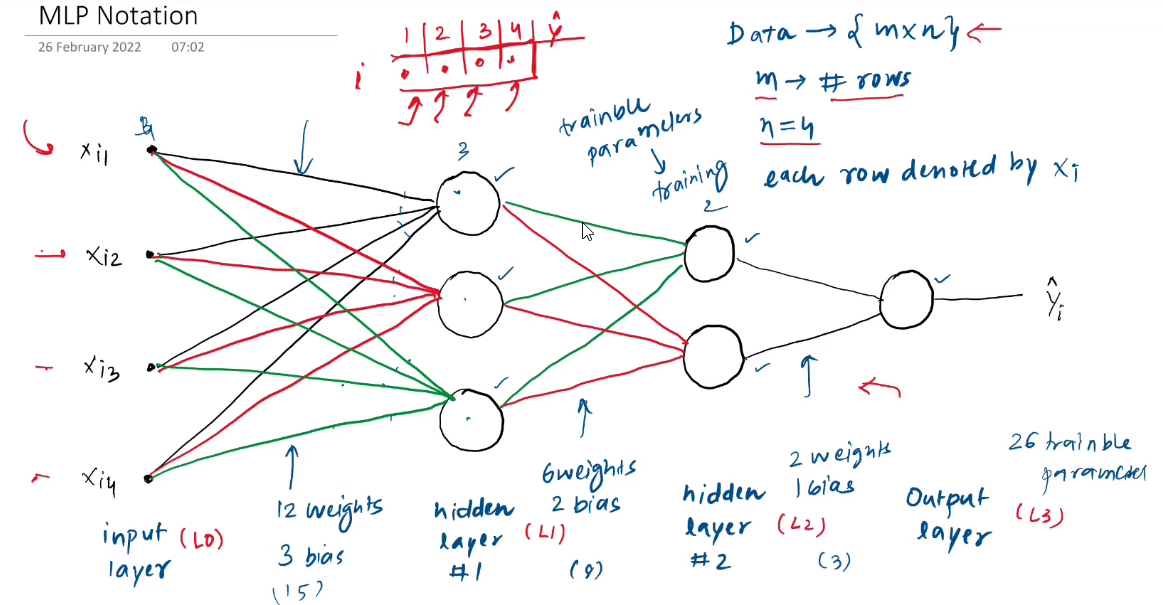 MLP Notation
26 February 2022 07:02
1 2 3 4 ŷ
i
Data → { m x n }
m → # rows
n = 4
each row denoted by xi
trainble
parameters
training
4
3
2
xi1
xi2
xi3
xi4
ŷi
input (L0)
layer
12 weights
3 bias
(15)
hidden (L1)
layer
#1
6 weights
2 bias
(8)
hidden (L2)
layer
#2
2 weights
1 bias
(3)
Output (L3)
layer
26 trainble